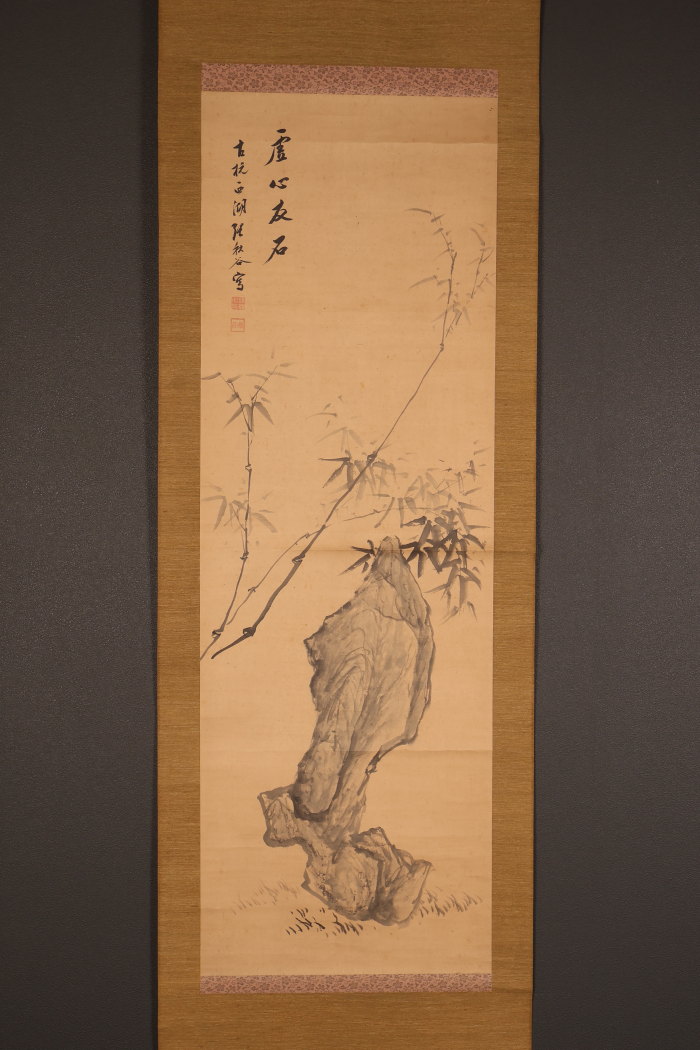 虛心友石
古杭西湖張秋谷寫